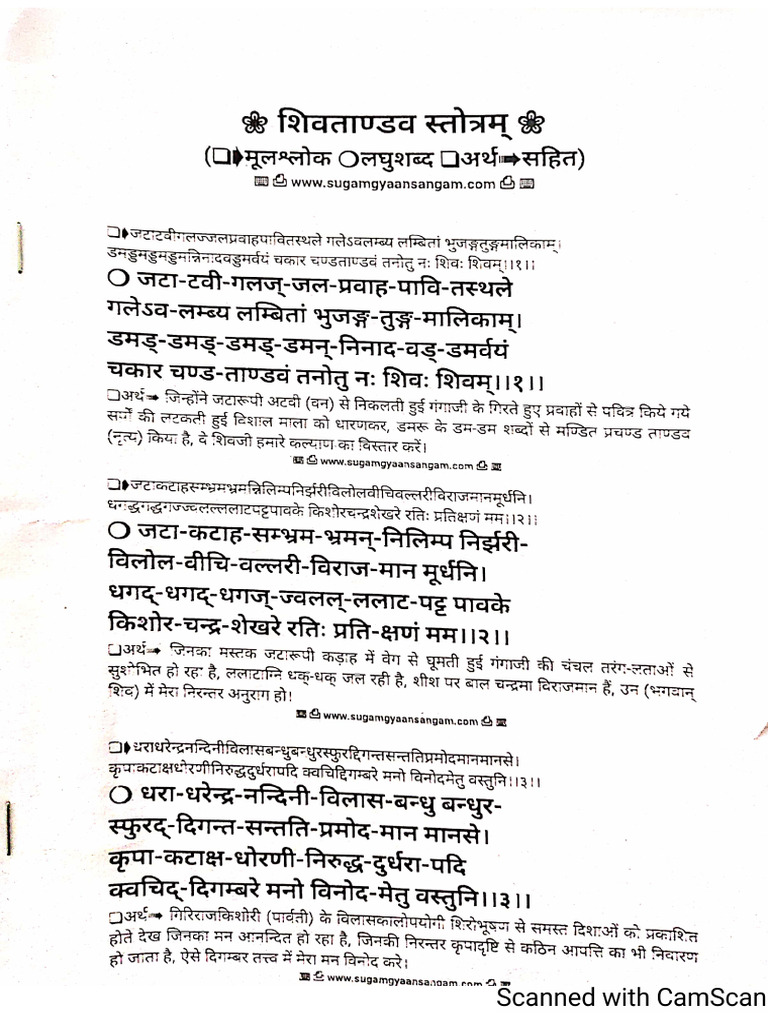 ❀ शिवताण्डव स्तोत्रम् ❀
(❑➧मूलश्लोक ❍लघुशब्द ❑अर्थ➠सहित)
www.sugamgyaansangam.com
❑➧जटाटवीगलज्जलप्रवाहपावितस्थले गलेऽवलम्ब्य लम्बितां भुजङ्गतुङ्गमालिकाम्।
डमड्डमड्डमड्डमन्निनादवड्डमर्वयं चकार चण्डताण्डवं तनोतु नः शिवः शिवम्।।१।।
❍ जटा-टवी-गलज्-जल-प्रवाह-पावि-तस्थले
गलेऽव-लम्ब्य लम्बितां भुजङ्ग-तुङ्ग-मालिकाम्।
डमड्-डमड्-डमड्-डमन्-निनाद-वड्-डमर्वयं
चकार चण्ड-ताण्डवं तनोतु नः शिवः शिवम्।।१।।
❑अर्थ➠ जिन्होंने जटारूपी अटवी (वन) से निकलती हुई गंगाजी के गिरते हुए प्रवाहों से पवित्र किये गये
सर्पों की लटकती हुई विशाल माला को धारणकर, डमरू के डम-डम शब्दों से मण्डित प्रचण्ड ताण्डव
(नृत्य) किया है, वे शिवजी हमारे कल्याण का विस्तार करें।
www.sugamgyaansangam.com
❑➧जटाकटाहसम्भ्रमभ्रमन्निलिम्पनिर्झरीविलोलवीचिवल्लरीविराजमानमूर्धनि।
धगद्धगद्धगज्ज्वलल्ललाटपट्टपावके किशोरचन्द्रशेखरे रतिः प्रतिक्षणं मम।।२।।
❍ जटा-कटाह-सम्भ्रम-भ्रमन्-निलिम्प निर्झरी-
विलोल-वीचि-वल्लरी-विराज-मान मूर्धनि।
धगद्-धगद्-धगज्-ज्वलल्-ललाट-पट्ट पावके
किशोर-चन्द्र-शेखरे रतिः प्रति-क्षणं मम।।२।।
❑अर्थ➠ जिनका मस्तक जटारूपी कड़ाह में वेग से घूमती हुई गंगाजी की चंचल तरंग-लताओं से
सुशोभित हो रहा है, ललाटाग्नि धक्-धक् जल रही है, शीश पर बाल चन्द्रमा विराजमान हैं, उन (भगवान्
शिव) में मेरा निरन्तर अनुराग हो।
www.sugamgyaansangam.com
❑➧धराधरेन्द्रनन्दिनीविलासबन्धुबन्धुरस्फुरद्दिगन्तसन्ततिप्रमोदमानमानसे।
कृपाकटाक्षधोरणीनिरुद्धदुर्धरापदि क्वचिद्दिगम्बरे मनो विनोदमेतु वस्तुनि।।३।।
❍ धरा-धरेन्द्र-नन्दिनी-विलास-बन्धु बन्धुर-
स्फुरद्-दिगन्त-सन्तति-प्रमोद-मान मानसे।
कृपा-कटाक्ष-धोरणी-निरुद्ध-दुर्धरा-पदि
क्वचिद्-दिगम्बरे मनो विनोद-मेतु वस्तुनि।।३।।
❑अर्थ➠ गिरिराजकिशोरी (पार्वती) के विलासकालोपयोगी शिरोभूषण से समस्त दिशाओं को प्रकाशित
होते देख जिनका मन आनन्दित हो रहा है, जिनकी निरन्तर कृपादृष्टि से कठिन आपत्ति का भी निवारण
हो जाता है, ऐसे दिगम्बर तत्त्व में मेरा मन विनोद करे।
www.sugamgyaansangam.com
Scanned with CamScan